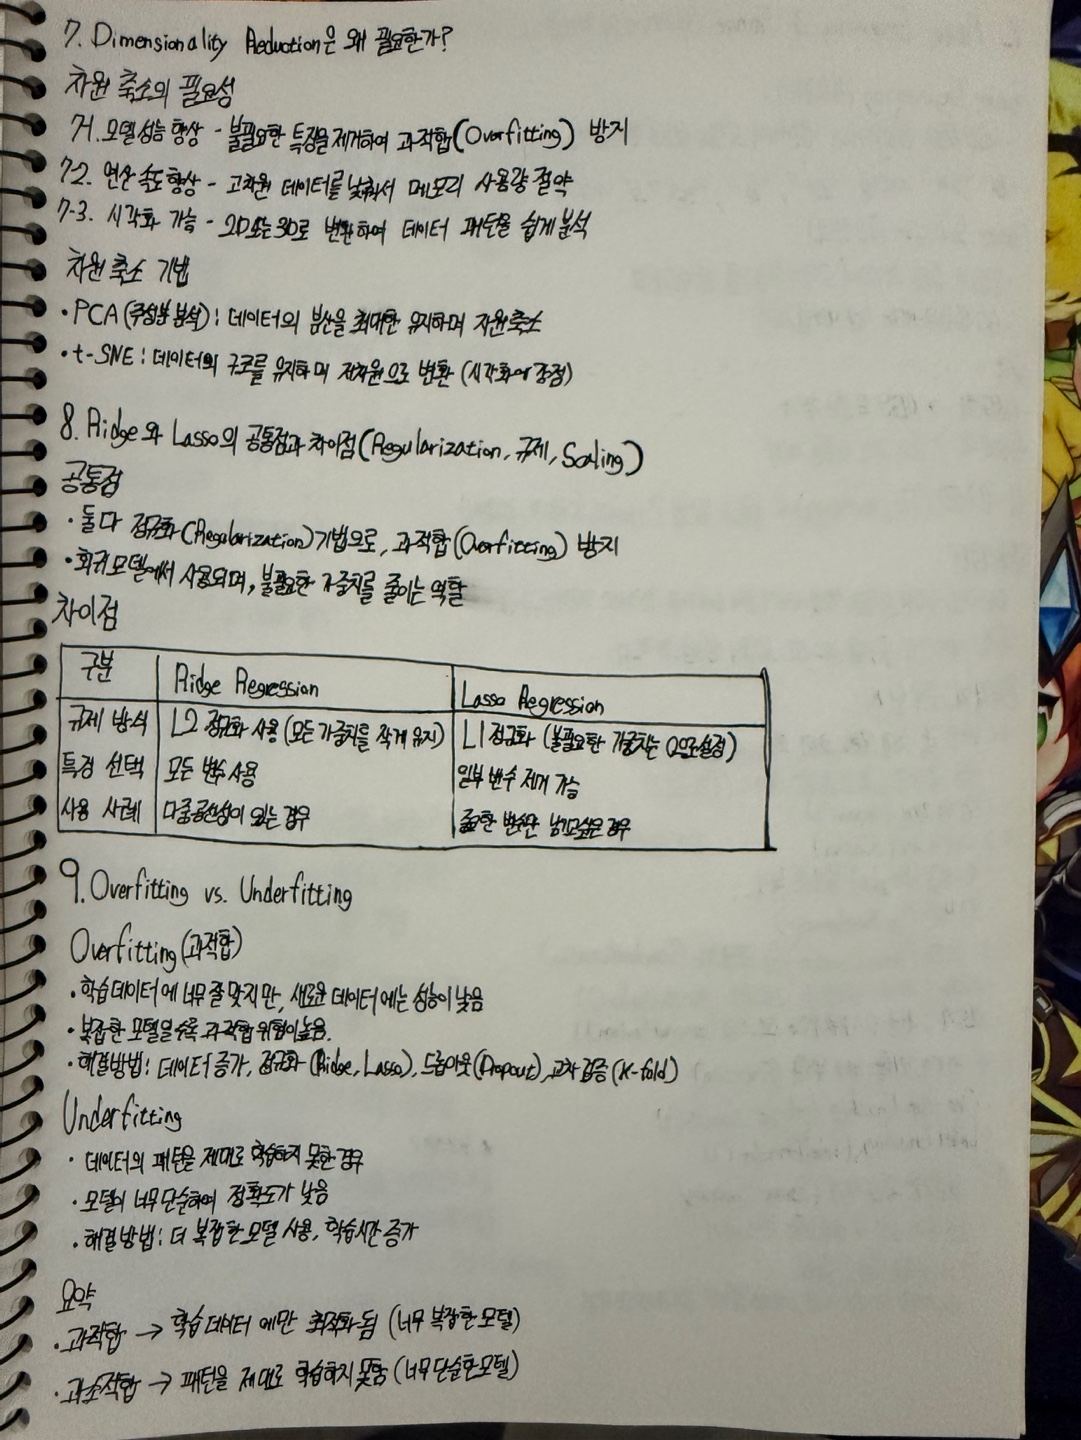 7. Dimensionality Reduction은 왜 필요한가?
차원 축소의 필요성
7-1. 모델 성능 향상 - 불필요한 특징을 제거하여 과적합(Overfitting) 방지
7-2. 연산 속도 향상 - 고차원 데이터를 낮춰서 메모리 사용량 절약
7-3. 시각화 가능 - 2D또는3D로 변환하여 데이터 패턴을 쉽게 분석
차원 축소 기법
• PCA(주성분 분석) : 데이터의 분산을 최대한 유지하며 차원축소
• t-SNE : 데이터의 구조를 유지하며 저차원으로 변환 (시각화에 강점)
8. Ridge와 Lasso의 공통점과 차이점(Regularization, 규제, Scaling)
공통점
• 둘 다 정규화(Regularization)기법으로, 과적합(Overfitting) 방지
• 회귀 모델에서 사용되며, 불필요한 가중치를 줄이는 역할
차이점
구분 Ridge Regression Lasso Regression
규제 방식 L2 정규화 사용 (모든 가중치를 작게 유지) L1 정규화 (불필요한 가중치는 0으로설정)
특징 선택 모든 변수 사용 일부 변수 제거 가능
사용 사례 다중공선성이 있는 경우 중요한 변수만 남기고싶은 경우
9. Overfitting vs. Underfitting
Overfitting(과적합)
• 학습 데이터에 너무 잘 맞지만, 새로운 데이터에는 성능이 낮음
• 복잡한 모델일수록 과적합 위험이 높음.
• 해결방법: 데이터 증가, 정규화 (Ridge, Lasso), 드롭아웃(Dropout), 교차 검증 (K-fold)
Underfitting
• 데이터의 패턴을 제대로 학습하지 못한 경우
• 모델이 너무 단순하여 정확도가 낮음
• 해결 방법: 더 복잡한 모델 사용, 학습시간 증가
요약
• 과적합 → 학습 데이터에만 최적화 됨 (너무 복잡한 모델)
• 과소적합 → 패턴을 제대로 학습하지 못함 (너무 단순한 모델)